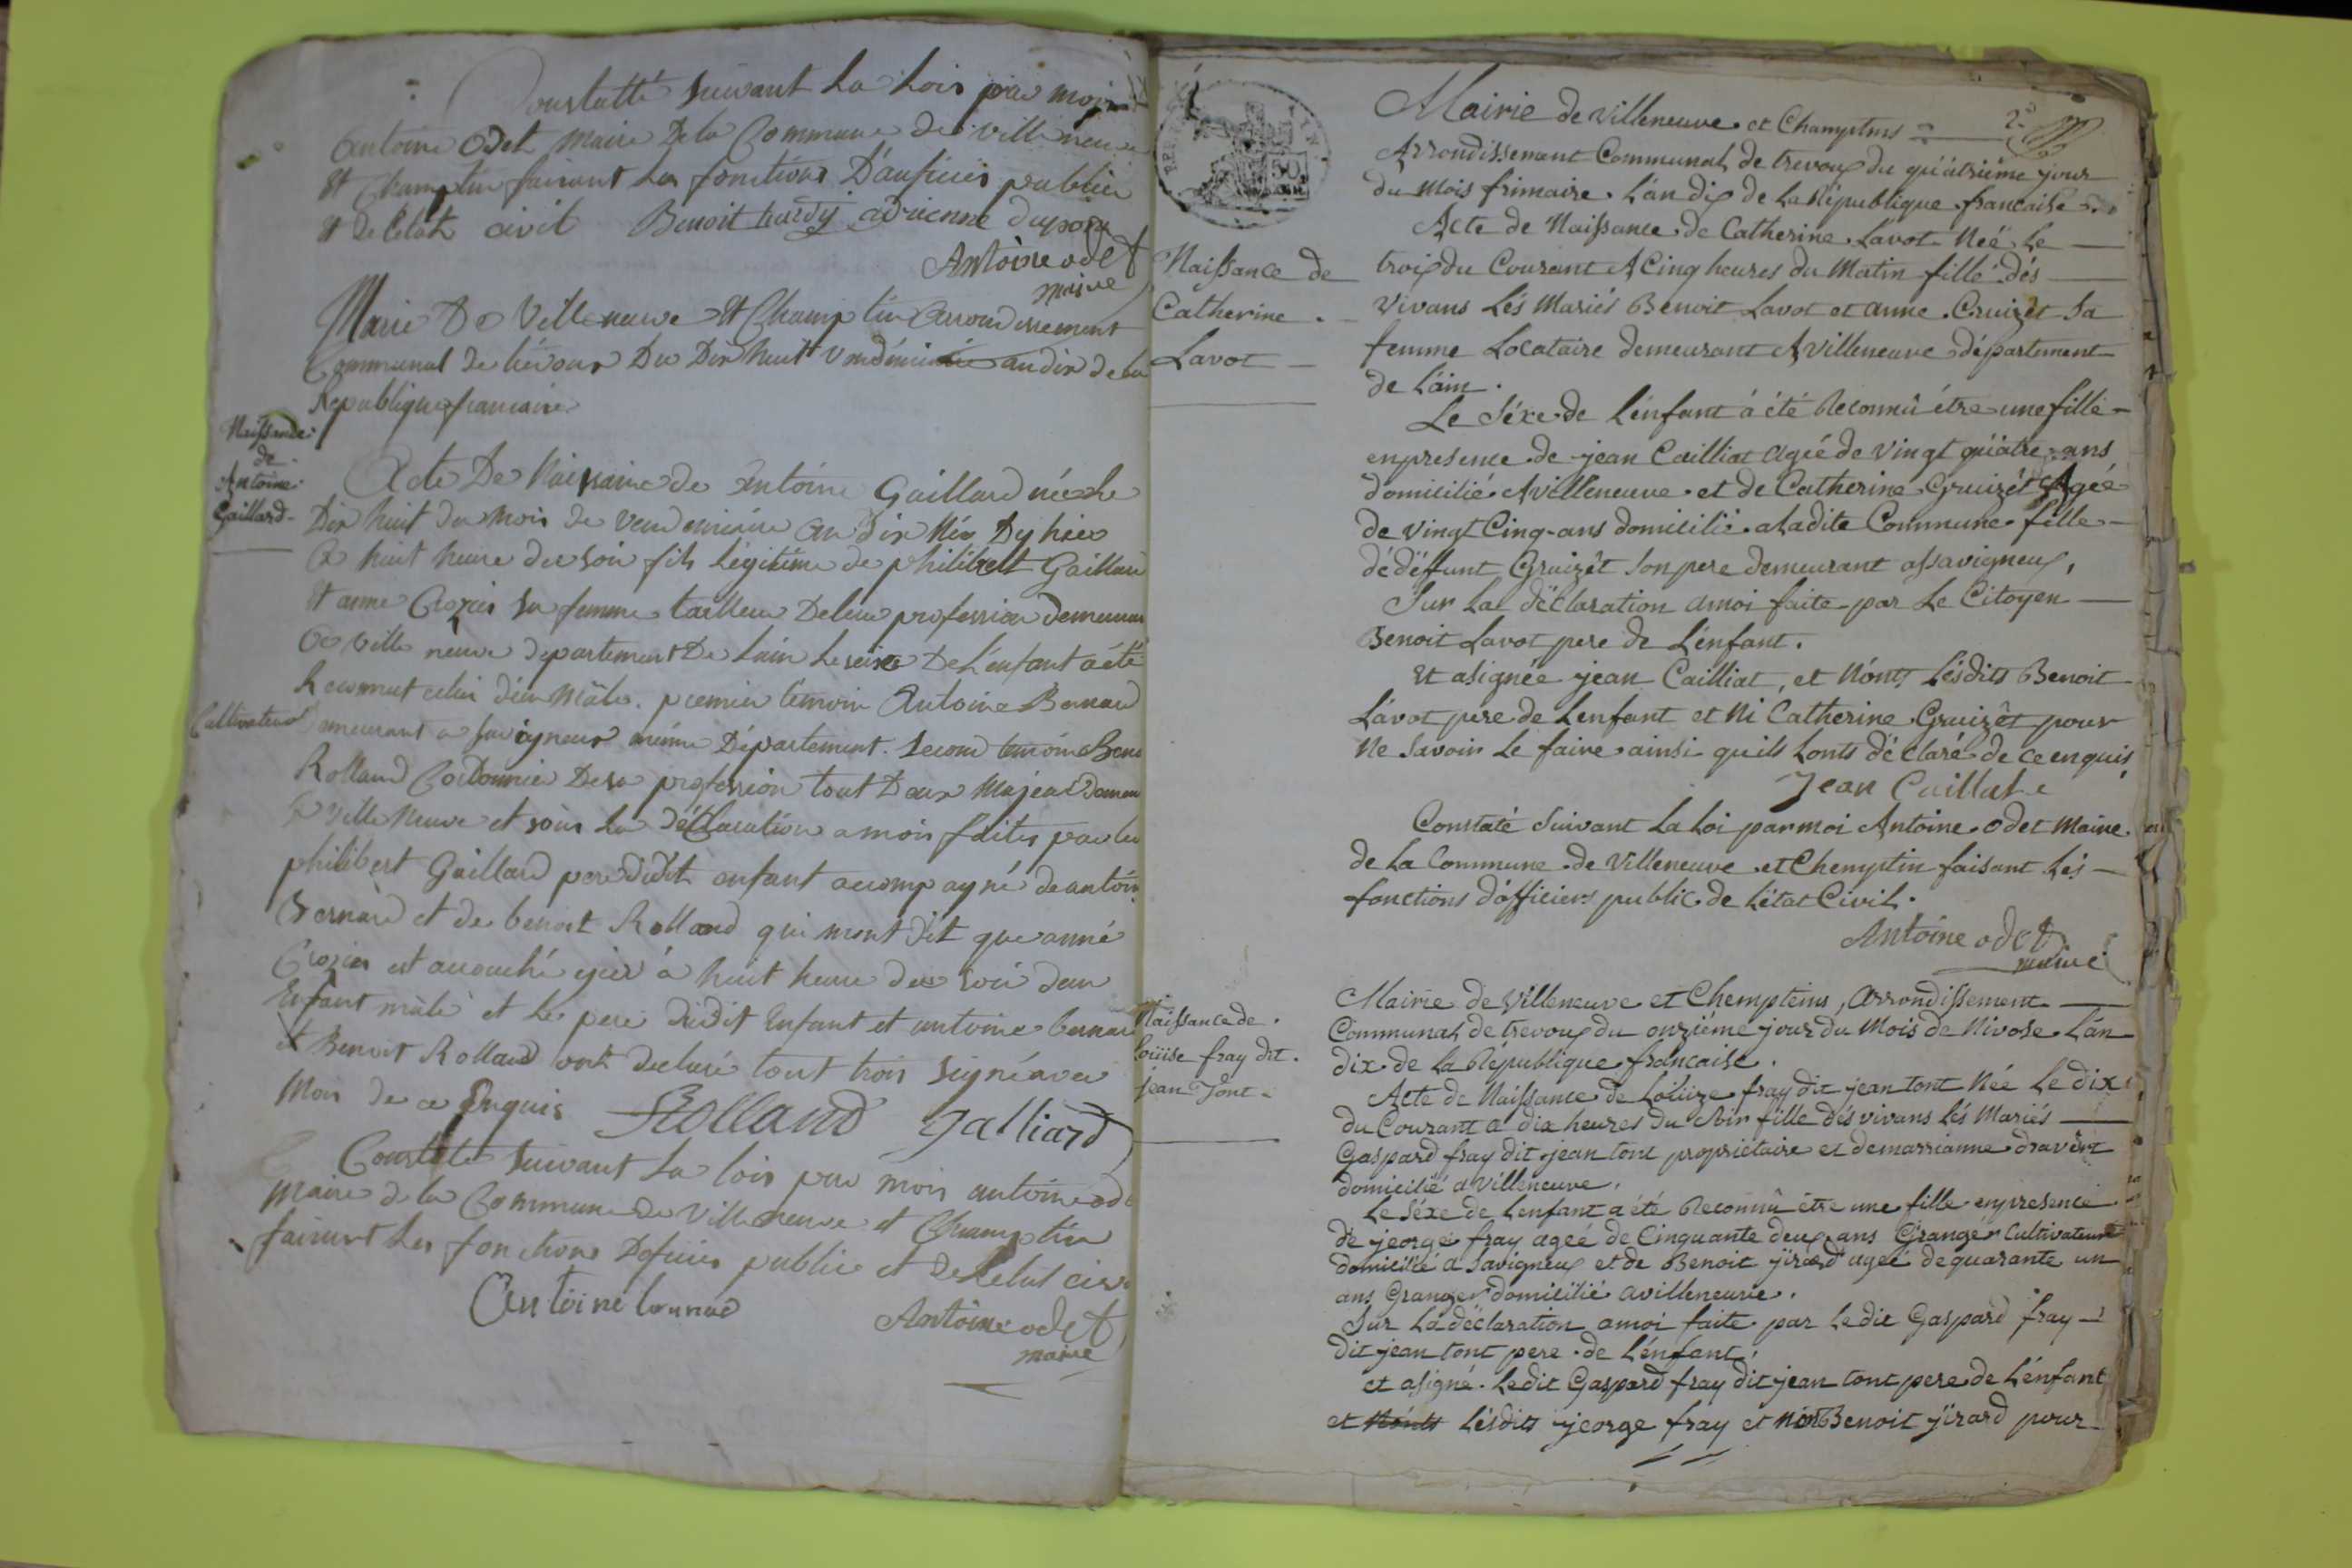 Constatté suivant La Lois par moi
Antoine Odet maire De la Commune de villeneuve
Et Champtin faisant Les fonctions D'auficier public
Et de L'état civil Benoit hardy adrienne dupon
Antoine odet
maire
Mairie De Villeneuve Et Champtin arrondissement
Communal de trévoux Du Dix huit vendémiaire an dix de la
Republique francaise
Naissance
de
Antoine
Gaillard
Acte De Naissance de Antoine Gaillard née le
Dix huit du mois de vendemiaire an dix Née Dy hier
a huit heure du soir fils légitime de philibert Gaillard
Et anne Crozier sa femme tailleur De leur profession demeurant
a ville neuve département De Lain Le sexe De L'enfant a été
Reconnut celui d'un mâle. premier témoin Antoine Bernard
Cultivateur Demeurant a savigneux même Département. Second temoin Beno
Rolland Cordonnier De sa profession tout Deux Majeur Demeu
a Ville Neuve et sous La Déclaration a mois faites par le
philibert Gaillard pere dudit enfant accompagné de antoin
Bernard et de benoit Rolland qui mont dit que anne
Crozier est accouché yier à huit heure du soir d'un
Enfant mâle et Le pere dudit Enfant et antoine bernard
et Benoit Rolland ont declaré tout trois signé avec
Mois de ce Enquis Rolland Galliard
Constaté suivant La lois par mois antoine ode
Maire de la Commune de Villeneuve et Champtin
faisant Les fonctions Doficier public et de Letat civi
Antoine bernard
Antoine odet
maire
Mairie de Villeneuve et Champtins 2e
Arrondissement Communal de trevoux du quatriéme jour
du Mois frimaire. L'an dix de La République francaise.
Naissance de
Catherine
Lavot
Acte de Naissance de Catherine Lavot Née Le
trois du Courant A Cinq heures du Matin fille dés
Vivans Lés Mariés Benoit Lavot et anne Cruizet Sa
femme Locataire demeurant A villeneuve département
de L'ain.
Le Séxe de L'énfant à été Reconnû étre une fille
en presence de jean Cailliat Agée de vingt quatre ans
domicilié A villeneuve et de Catherine Gruizêt Agée
de vingt Cinq ans domicilié a Ladite Commune fille
dé déffunt Gruizêt Son pere demeurant assavigneux,
Sur La déclaration a moi faite par Le Citoyen
Benoit Lavot pere de L'énfant.
Et a signée jean Cailliat, et Nonts Lésdits Benoit
Lavot pere de Lenfant et Ni Catherine Gruizêt pour
Ne Savoir Le faire ainsi quils Lonts déclaré de ce enquis
Jean Caillat
Constaté Suivant La Loi par moi Antoine odet Maire
de La Commune de Villeneuve et Chemptin faisant Lés
fonctions d'officiers public de L'état Civil.
Antoine odet
maire
Mairie de Villeneuve et Chempteins, Arrondissement
Communal de trevoux du onziéme jour du Mois de Nivose L'an
dix de La République francaise.
Naissance de
Loüise fray dit
jean Tont
Acte de Naissance de Loüize fray dit jean tont Née Le dix
du Courant a dix heures du Soir fille dés vivans Lés Mariés
Gaspard fray dit jean tont propriétaire et de marrianne dravent
domicilié a Villeneuve.
Le Séxe de Lenfant a été Reconnû étre une fille en presence
de jeorge fray agée de Cinquante deux ans Granger Cultivateur
domicilié a Savigneux et de Benoit jirard agée de quarante un
ans Granger domicilié a villeneuve.
Sur La déclaration a moi faite par Ledit Gaspard fray
dit jean tont pere de L'énfant.
et a signé Ledit Gaspard fray dit jean tont pere de L'énfant
et Nonts Lésdits jeorge fray et non Benoit jirard pour